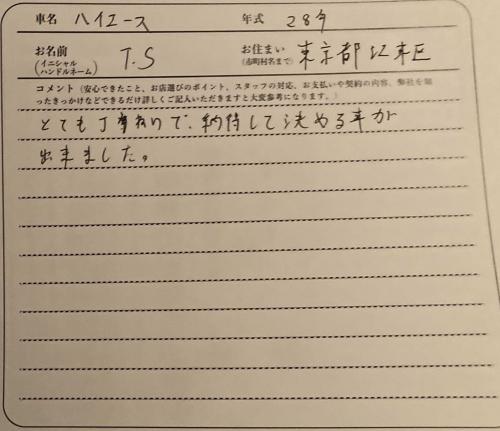 車名 ハイエース 年式 28年
お名前 (イニシャル ハンドルネーム) T.S お住まい (市町村名まで) 東京都江東区
コメント（安心できたこと、お店選びのポイント、スタッフの対応、お支払いや契約の内容、弊社を知
ったきっかけなどできるだけ詳しくご記入いただきますと大変参考になります。）
とても丁寧で、納得して決める事が
出来ました。